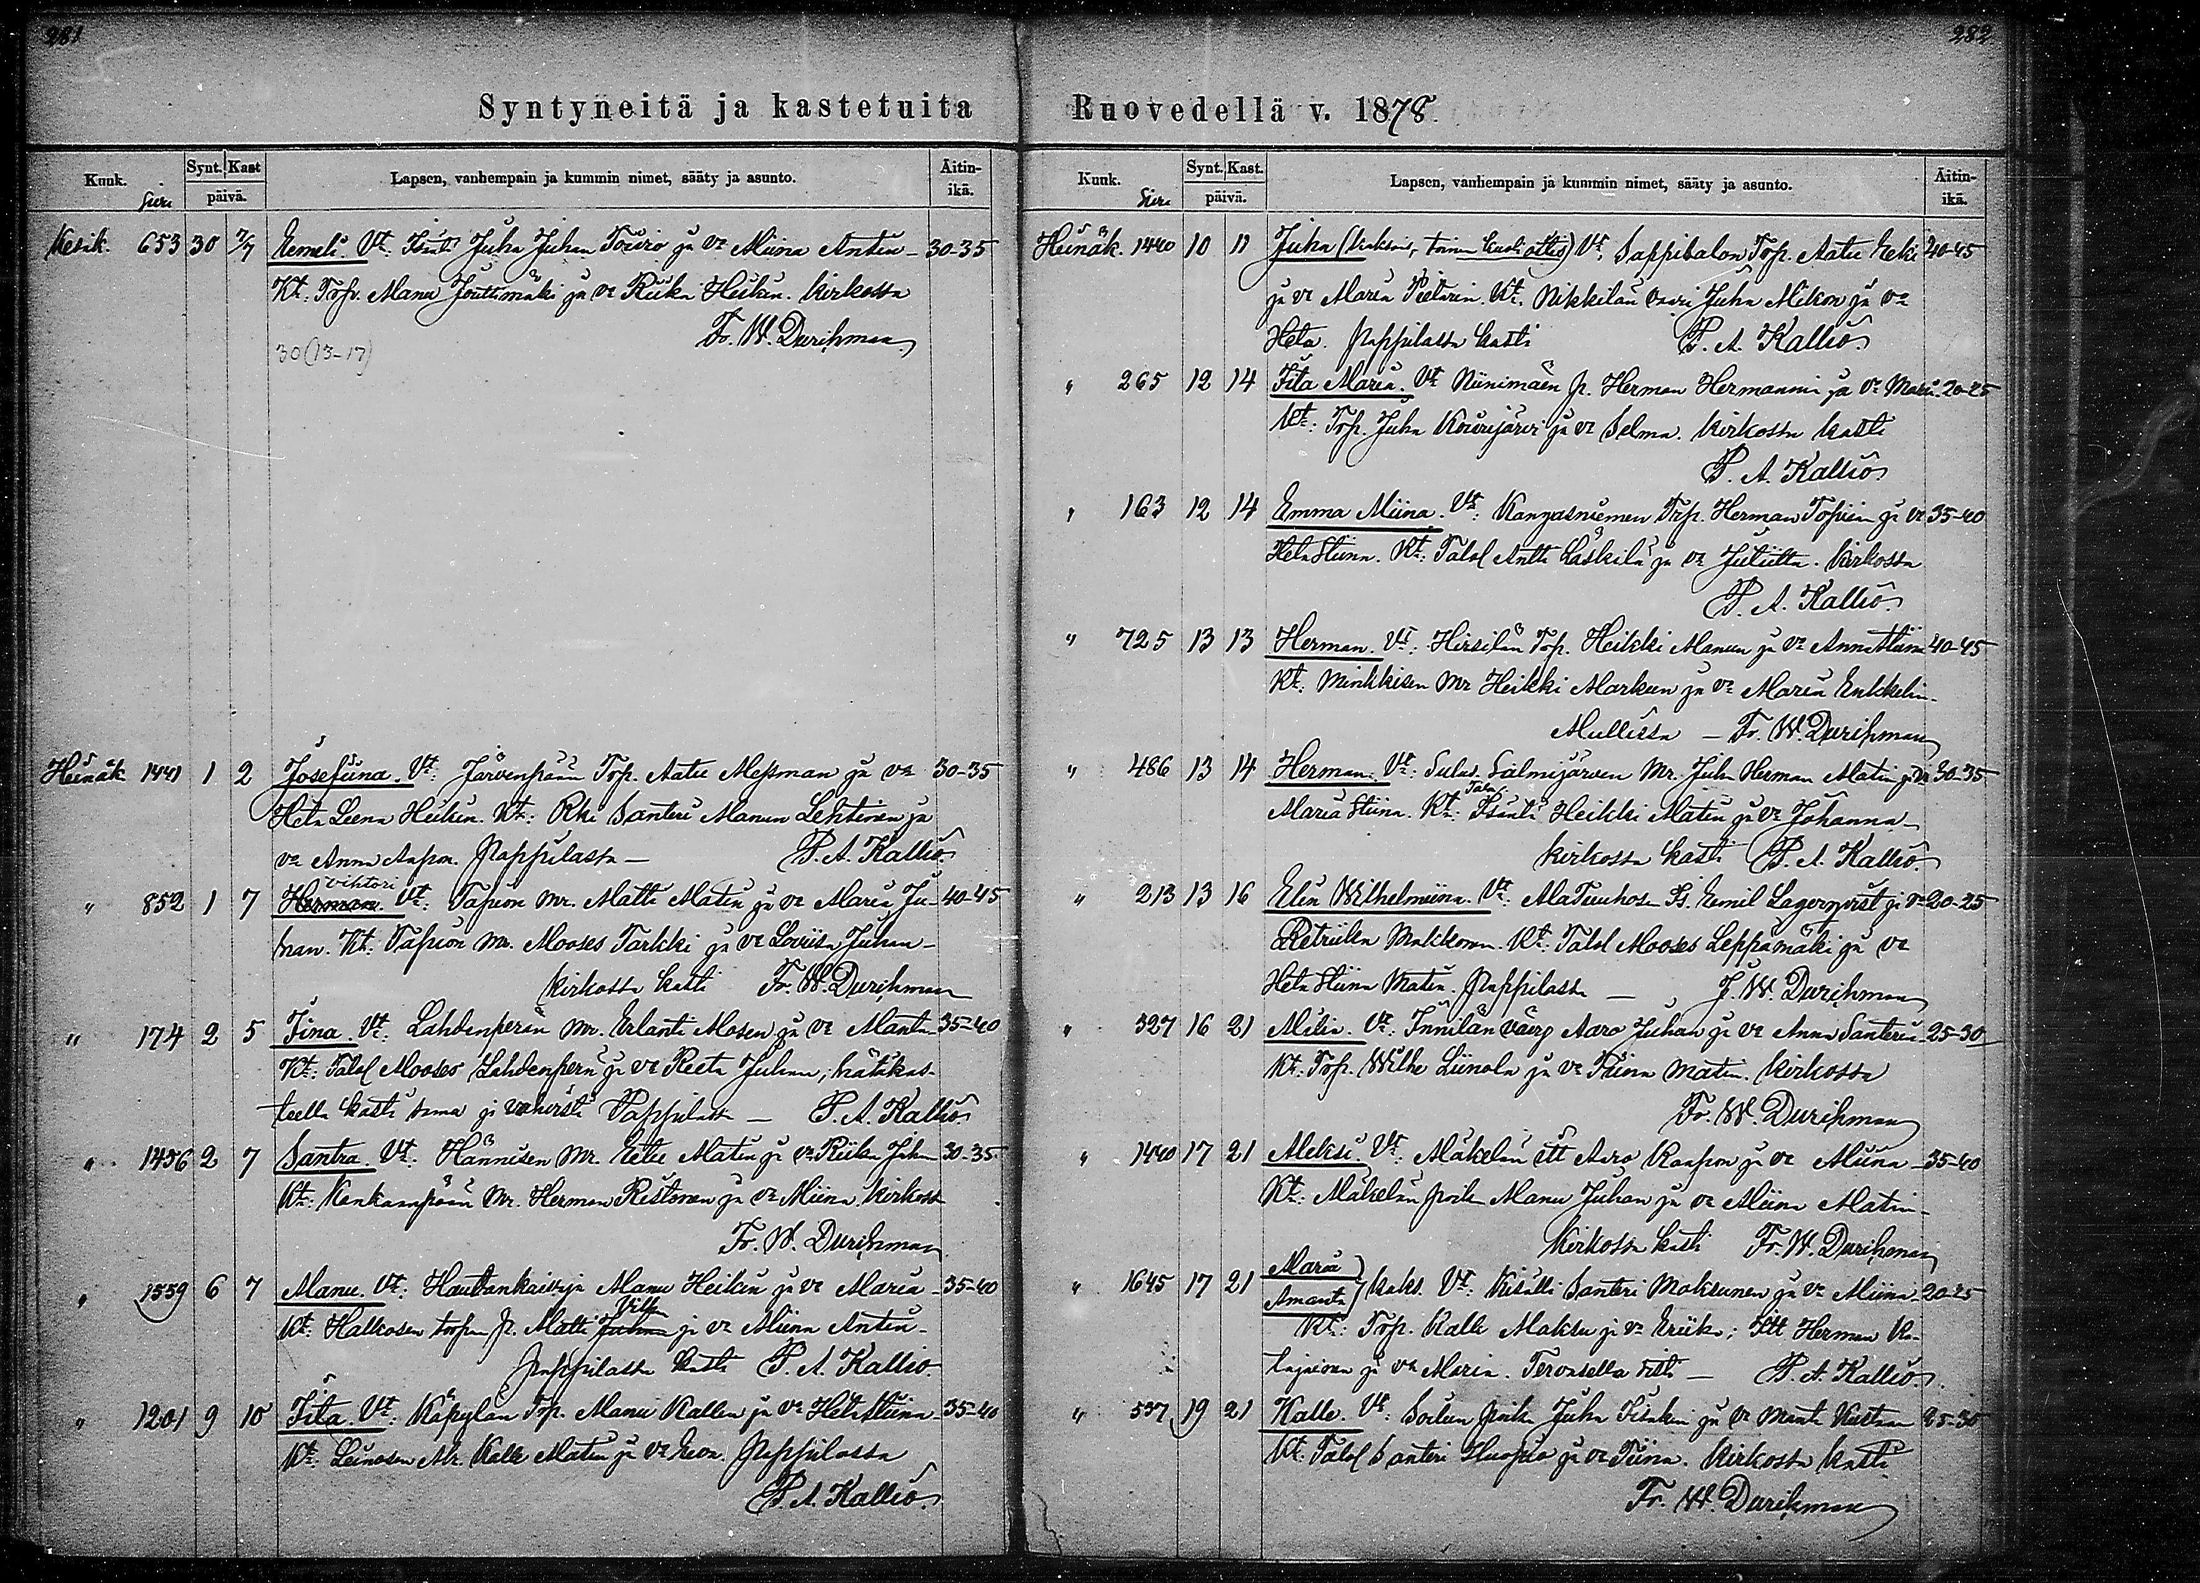 281
Syntyneitä ja kastetuita
Kuuk. Sivu Synt. Kast päivä. Lapsen, vanhempain ja kummin nimet, sääty ja asunto. Äitin-ikä.
Kesäk. 653 30 7/7 Eemeli. Vt: Juha Juhan Touvio ja vo Miina Antin 30-35
Kt: Torp. Manu Jouttimäki ja vo Riika Heikin. Kirkossa
Fr. W. Durchman
30 (13-17)
Heinäk 1441 1 2 Josefiina. Vt: Järvenpään Torp. Aatu Messman ja vo 30-35
Heta Leena Heikin. Kt: Rki Santeri Manun Lehtinen ja
vo Anna Aapon. Pappilassa — P. A. Kallio.
vihtori
" 852 1 7 Herman. Vt: Tapion Mr. Matti Matin ja vo Maria Ju- 40-45
han. Kt: Tapion Mr. Mooses Tarkki ja vo Loviisa Juhan
Kirkossa kasti Fr. W. Durchman
" 174 2 5 Iina. Vt: Lahdenperän Mr. Erlanti Mosen ja vo Manta 35-40
Kt: Talol Mooses Lahdenperä ja vo Reeta Juhan, hätäkas-
teella kasti sama ja vahvisti Pappilassa — P. A. Kallio.
" 1456 2 7 Santra. Vt: Hännisen Mr. Eetu Matin ja vo Riika Juhan 30-35
Kt: Kankaanpään Mr. Herman Ristonen ja vo Miina. Kirkossa
Fr. W. Durchman
" 1559 6 7 Manu. Vt: Haudankaivaja Manu Heikin ja vo Maria 35-40
Ville
Kt: Halkosen torpan p. Matti Juhan ja vo Miina Antin
Pappilassa kasti P. A. Kallio.
" 1201 9 10 Iita. Vt: Käpylän Torp. Manu Kallen ja vo Heta Stiina 35-40
Kt: Leinosen Mr. Kalle Matin ja vo Eeva. Pappilassa
P. A. Kallio.
282
Ruovedellä v. 1878.
Kuuk. Sivu Synt. Kast. päivä. Lapsen, vanhempain ja kummin nimet, sääty ja asunto. Äitin-ikä.
Heinäk. 1440 10 11 Juha (kaksois, toinen kuoli ) Vt: Sappibalon Torp. Aatu Eeki 40-45
ja vo Maria Pietarin. Kt: Nikkilän vaari Juha Mikon ja vo
Heta. Pappilassa kasti P. A. Kallio.
" 265 12 14 Iita Maria. Vt: Niinimäen p. Herman Hermannin ja vo Maria 20-25
Kt: Torp. Juha Kouvijärvi ja vo Selma. Kirkossa kasti
P. A. Kallio
" 163 12 14 Emma Miina. Vt: Kangasniemen Trp. Herman Topiin ja vo 35-40
Heta Stiina. Kt: Talol Antti Läskelä ja vo Julietta. Kirkossa
P. A. Kallio.
" 725 13 13 Herman. Vt: Hirsilän Tp. Heikki Manun ja vo Anna Stiina 40-45
Kt: Minkkisen Mr Heikki Markun ja vo Maria Enkkelin
Mullissa — Fr. W. Durchman
" 486 13 14 Herman. Vt: Salmijärven Mr. Juha Herman Matin ja vo 30-35
Talo
Maria Stiina. Kt: Isäntä Heikki Matin ja vo Johanna
Kirkossa kasti P. A. Kallio.
" 213 13 16 Elin Wilhelmiina. Vt: AlaTuuhosen Is. Eemil Lagerqvist ja vo 20-25
Retriika Makkonen. Kt: Talol Mooses Leppämäki ja vo
Heta Stiina Matin. Pappilassa — F. W. Durchman
" 327 16 21 Miliia. Vt: Innilän vävy Aaro Juhan ja vo Anna Santerin 25-30
Kt: Torp. Wilhe Liinola ja vo Tiina Matin. Kirkossa
Fr. W. Durchman
" 1440 17 21 Aleksi. Vt: Mäkelän itt Aaro Kaapon ja vo Miina 35-40
Kt: Mäkelän poika Manu Juhan ja vo Miina Matin
Kirkossa kasti Fr. W. Durchman
" 1645 17 21 Maria Amanta } kaks. Vt: Kisälli Santeri Moksunen ja vo Miina 20-25
Kt: Torp. Kalle Moksu ja vo Eriika; Itt Herman
ja vo Maria. — P. A. Kallio.
" 537 19 21 Kalle. Vt: Soilun poika Juha Iisakin ja vo Manta Kustaan 25-30
Kt: Talol Santeri Huopio ja vo Tiina. Kirkossa kasti
Fr. W. Durchman